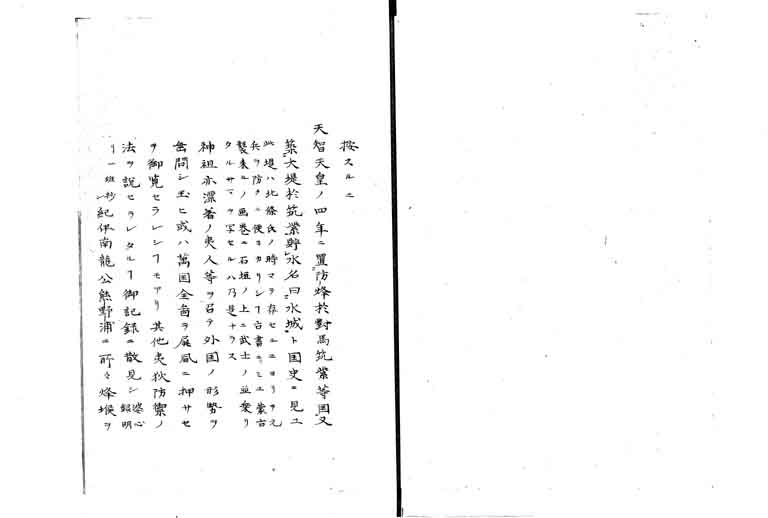 按スルニ
天智天皇ノ四年ニ置防烽於對馬筑紫等国又
築大堤於筑紫貯水名曰水城ト国史ニ見ユ
此堤ハ北條氏ノ時マテ存セルニヨリテ元
兵ヲ防クニ便ヨカリシ古書ニミユ蒙古
襲来ノ画巻ニ石垣ノ上ニ武士ノ並乗リ
タルサマヲ写セルハ乃是ナラス
神祖亦漂着ノ夷人等ヲ召テ外国ノ形勢ヲ
問シ玉ヒ或ハ萬国全畣ヲ屏風ニ押サセ
ヲ御覧セラレシヿモアリ其他夷狄防禦ノ
法ヲ説セラレタルヿ御記録ニ散見シ
紀伊南龍公熊野浦ニ所々烽堠ヲ